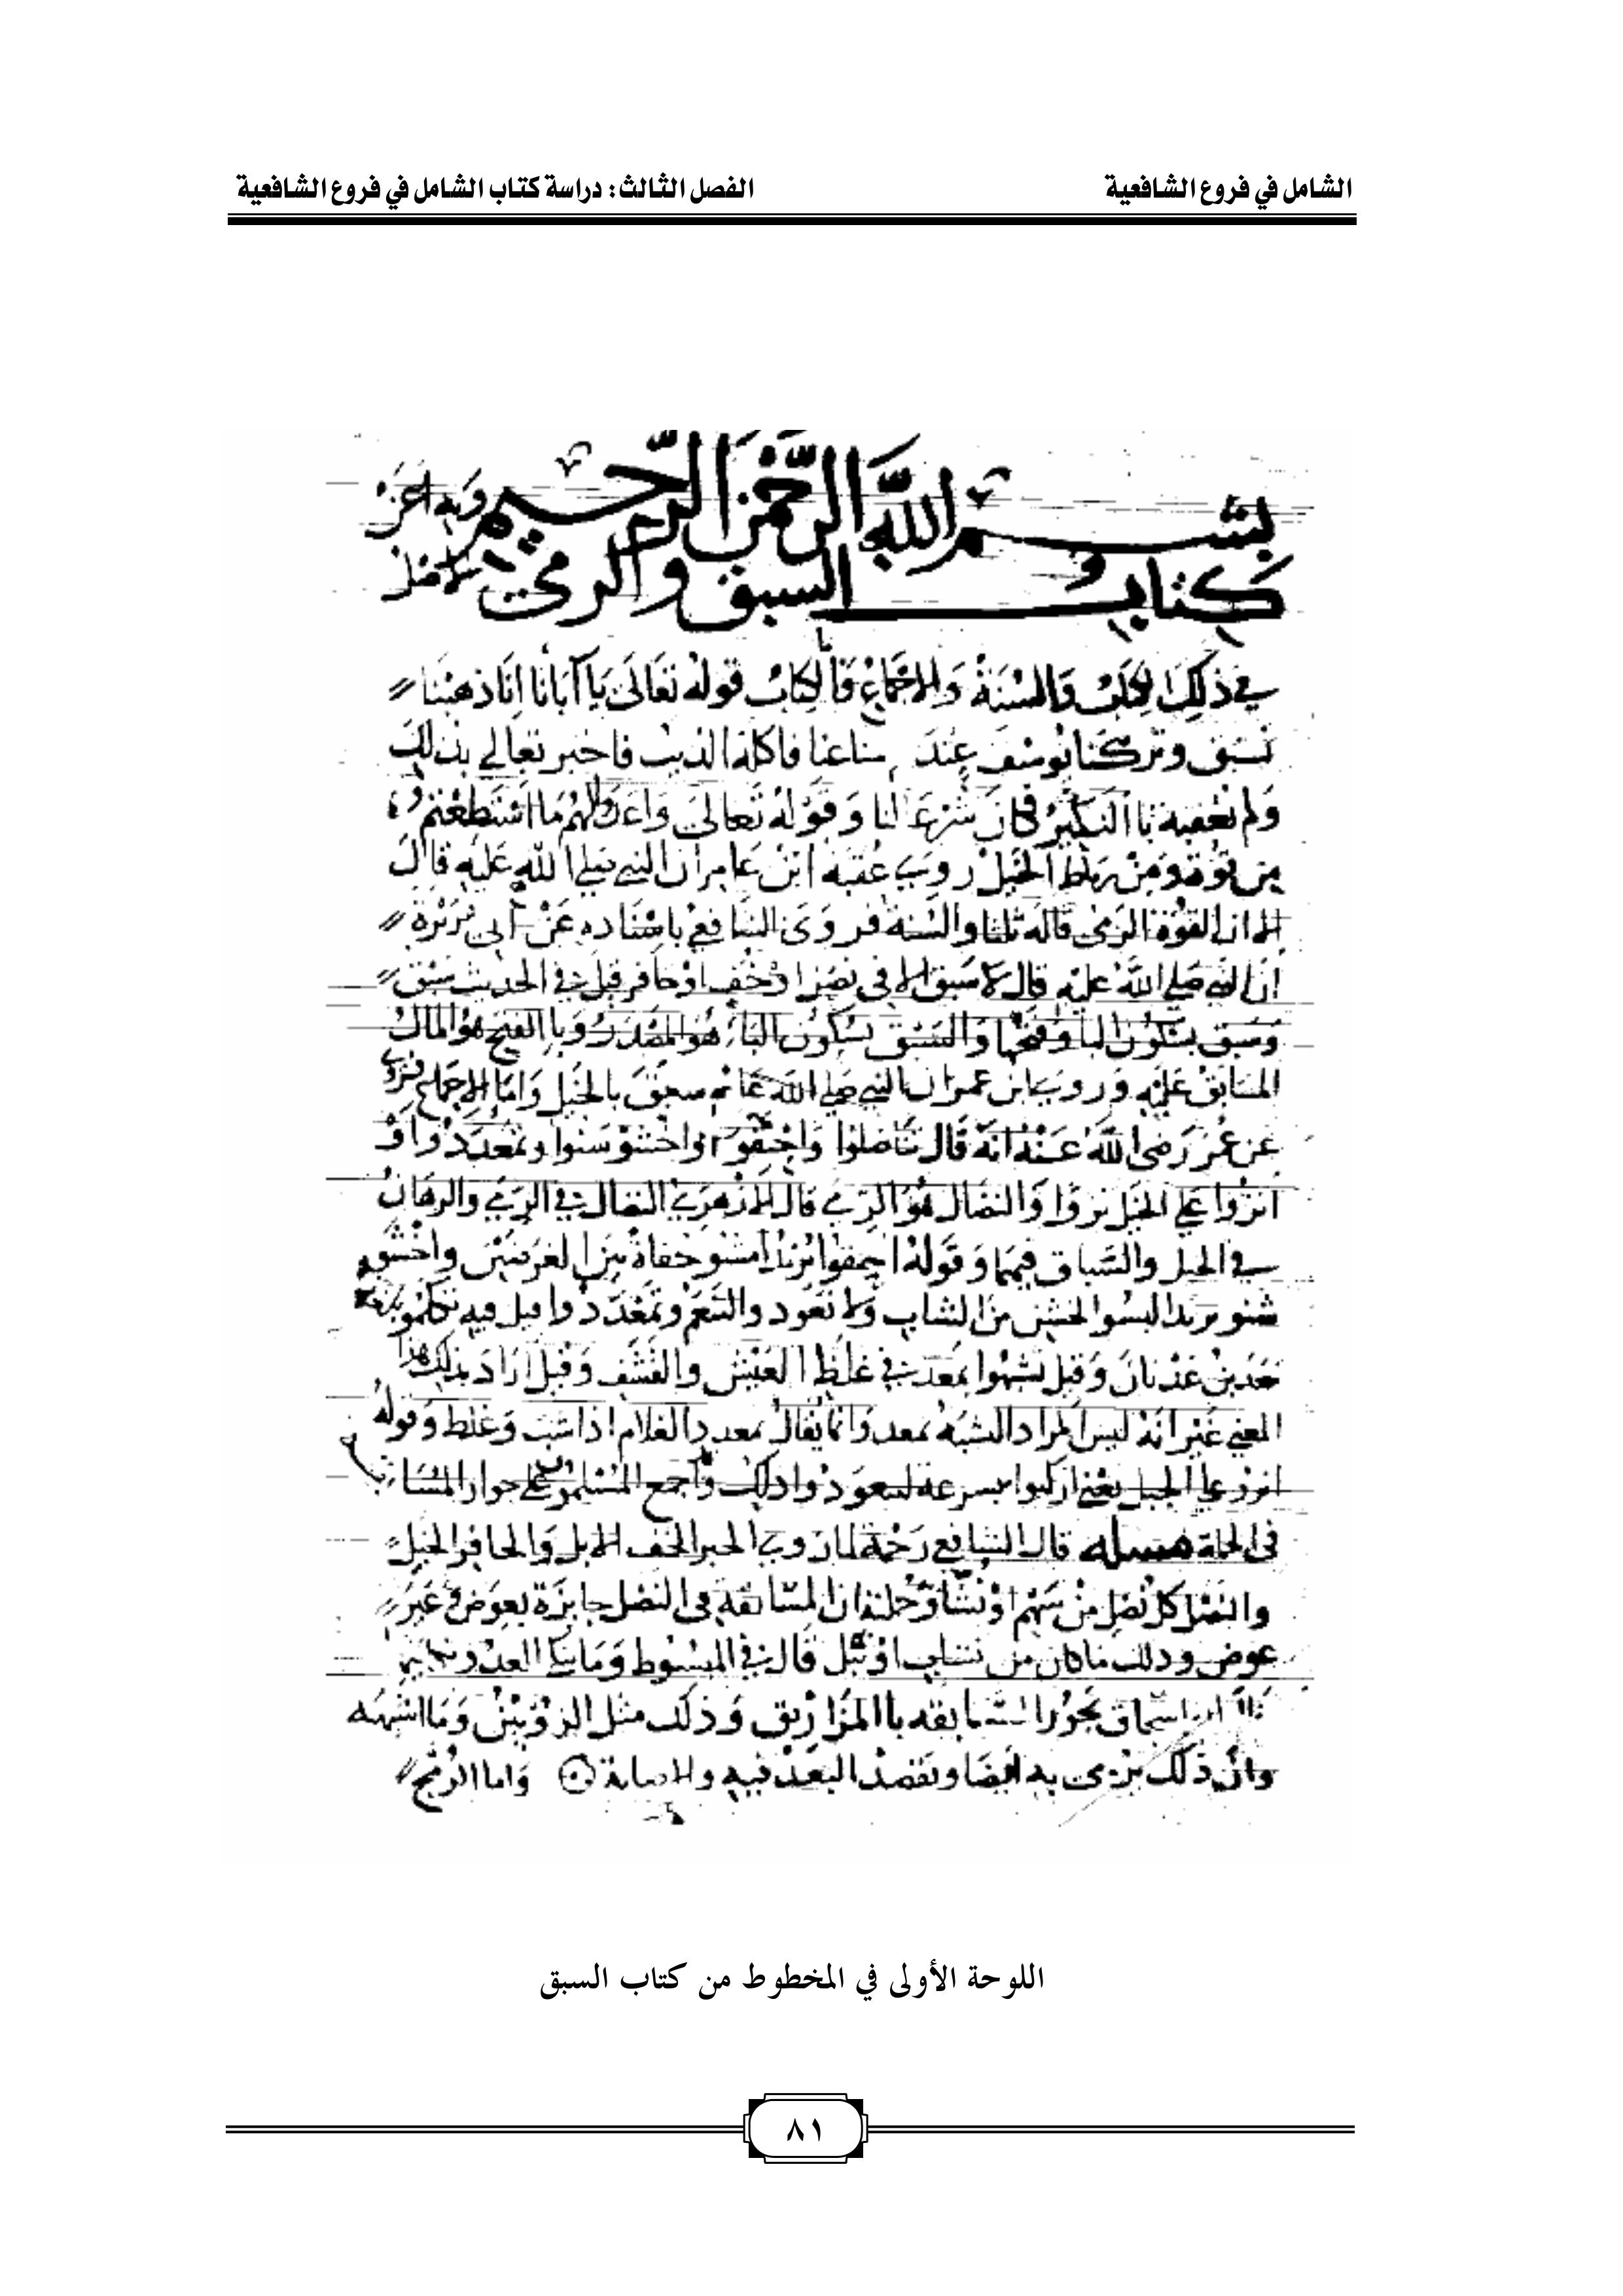 الشامل في فروع الشافعية
الفصل الثالث: دراسة كتاب الشامل في فروع الشافعية
بسم الله الرحمن الرحيم وبه اعز
كتاب السبق والرمي الاصل
في ذلك الكتاب والسنة والاجماع فالكتاب قوله تعالى يا آبانا انا ذهبنا
نستبق وتركنا يوسف عند متاعنا فاكله الذيب فاخبر تعالى بذلك
ولم يعقبه بالنكير فكان شرعا لنا وقوله تعالى واعدوا لهم ما استطعتم
من قوة ومن رباط الخيل روى عقبة ابن عامر ان النبي صلى الله عليه قال
الا ان القوة الرمي قاله ثلثا والسنة فروى الشافعي باسناده عن أبي هريرة
أن النبي صلى الله عليه قال لا سبق الا في نصل او خف او حافر قيل في الحديث سبق
وسبق بسكون البا وفتحها والسبق بسكون الباء هو المصدر وبالفتح هو المال
المسابق عليه وروى ابن عمر ان النبي صلى الله عليه سبق بالخيل واما الاجماع فروي
عن عمر رضى الله عنه انه قال تناضلوا واحتفوا واخشوشنوا وتمعددوا و
انزوا على الخيل نزوا والنضال هو الرمي قال الازهري النضال في الرمي والرهان
في الخيل والسباق فيهما وقوله احتفوا يريد امشوا حفاة بين الغرضين واخشو
شنوا يريد البسوا الخشن من الثياب ولا تعودوا التنعم وتمعددوا قيل فيه تكلموا بلغة
معد بن عدنان وقيل تشبهوا بمعد في غلظ العيش والقشف وقيل اراد بذلك هذا
المعني غير انه ليس المراد الشبه بمعد وانما يقال تمعدد الغلام اذا شب وغلظ وقوله
انزوا على الخيل يعني اركبوا بسرعة لتعودوا ذلك واجمع المسلمون على جواز المسابقة
في الجملة مسله قال الشافعي رحمة لما روى الخبر الخف الابل والحافر الخيل
والنصل كل نصل من سهم او نشابة وجملته ان المسابقة في النصل جايزة بعوض وغير
عوض وذلك ما كان من نشاب او نبل قال في المبسوط وما ينكا العدو
اسحاق يجوز المسابقه بالمزاريق وذلك مثل الزوبين وما اشبهه
وان ذلك يرمى به ايضا ويقصد البعد فيه والاصابة واما الرمح
اللوحة الأولى في المخطوط من كتاب السبق
٨١